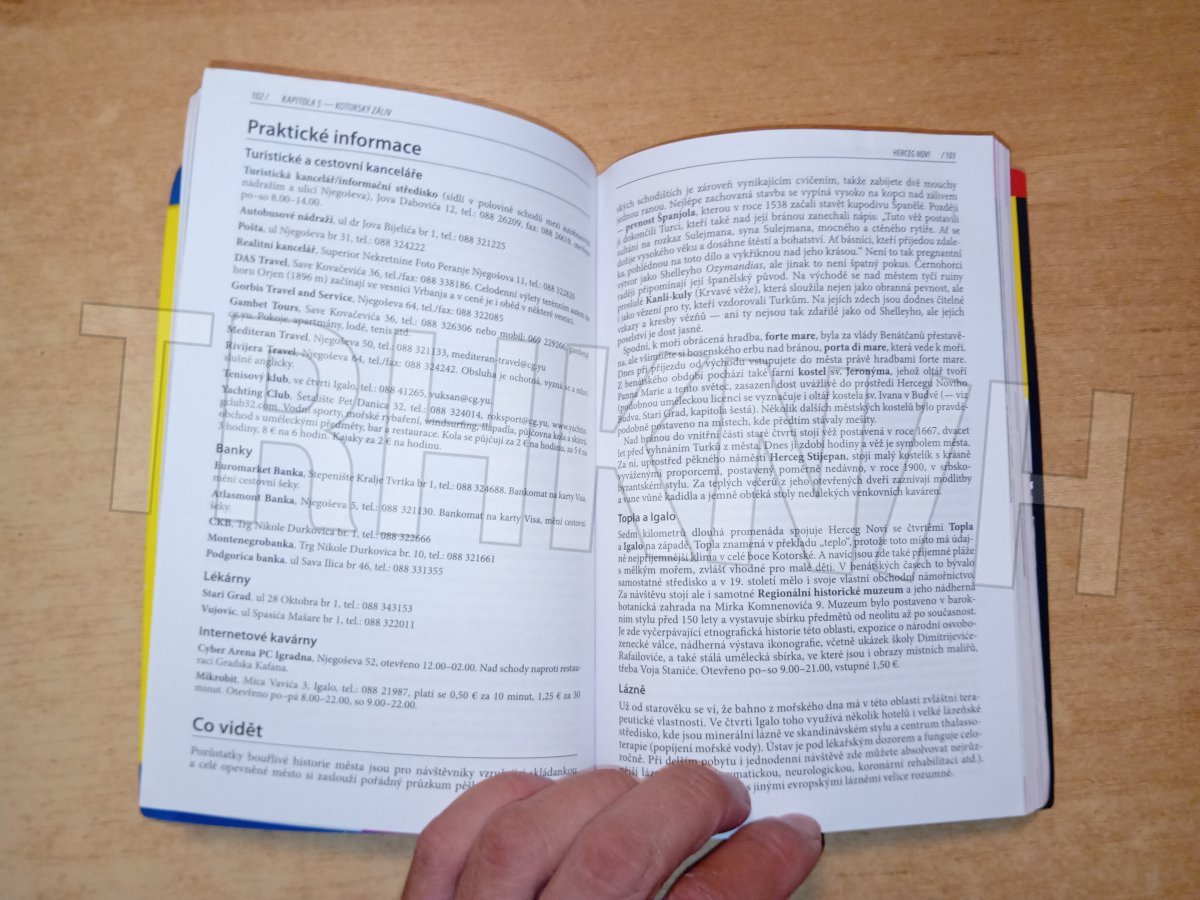 102 / KAPITOLA 5 — KOTORSKÝ ZÁLIV
Praktické informace
Turistické a cestovní kanceláře
Turistická kancelář/informační středisko (sídlí v polovině schodů mezi autobusovým
nádražím a ulicí Njegoševa), Jova Dabovića 12, tel.: 088 26209, fax: 088 26619, otevřeno
po–so 8.00–14.00.
Autobusové nádraží, ul dr Jova Bijelića br 1, tel.: 088 321225
Pošta, ul Njegoševa br 31, tel.: 088 324222
Realitní kancelář, Superior Nekretnine Foto Peranje Njegošova 11, tel.: 088 322820
DAS Travel, Save Kovačevića 36, tel./fax: 088 338186. Celodenní výlety terénním autem na
horu Orjen (1896 m) začínají ve vesnici Vrbanja a v ceně je i oběd v některé vesnici.
Gorbis Travel and Service, Njegoševa 64, tel./fax: 088 322085
Gambet Tours, Save Kovačevića 36, tel.: 088 326306 nebo mobil: 069 229266,
cg.yu. Pokoje, apartmány, lodě, tenis atd.
Mediteran Travel, Njegoševa 50, tel.: 088 321133, mediteran-travel@cg.yu
Rivijera Travel, Njegoševa 64, tel./fax: 088 324242. Obsluha je ochotná, vyzná se a mluví
slušně anglicky.
Tenisový klub, ve čtvrti Igalo, tel.: 088 41265, vuksan@cg.yu
Yachting Club, Šetalište Pet Danica 32, tel.: 088 324014, roksport@cg.yu, www.yachtin-
gclub32.com. Vodní sporty, mořské rybaření, windsurfing, šlapadla, půjčovna kol a skútrů,
obchod s uměleckými předměty, bar a restaurace. Kola se půjčují za 2 € na hodinu, za 5 € na
3 hodiny, 8 € na 6 hodin. Kajaky za 2 € na hodinu.
Banky
Euromarket Banka, Stepenište Kralje Tvrtka br 1, tel.: 088 324688. Bankomat na karty Visa,
mění cestovní šeky.
Atlasmont Banka, Njegoševa 5, tel.: 088 321130. Bankomat na karty Visa, mění cestovní
šeky.
CKB, Trg Nikole Durkovića br. 1, tel.: 088 322666
Montenegrobanka, Trg Nikole Durkovica br. 10, tel.: 088 321661
Podgorica banka, ul Sava Ilica br 46, tel.: 088 331355
Lékárny
Stari Grad, ul 28 Oktobra br 1, tel.: 088 343153
Vujovic, ul Spasića Mašare br 1, tel.: 088 322011
Internetové kavárny
Cyber Arena PC Igradna, Njegoševa 52, otevřeno 12.00–02.00. Nad schody naproti restau-
raci Gradska Kafana.
Mikrobit, Mica Vavića 3, Igalo, tel.: 088 21987, platí se 0,50 € za 10 minut, 1,25 € za 30
minut. Otevřeno po–pá 8.00–22.00, so 9.00–22.00.
Co vidět
Pozůstatky bouřlivé historie města jsou pro návštěvníky vzrušující skládankou
a celé opevněné město si zaslouží pořádný průzkum
HERCEG NOVI / 103
ských schodištích je zároveň vynikajícím cvičením, takže zabijete dvě mouchy
jednou ranou. Nejlépe zachovaná stavba se vypíná vysoko na kopci nad zálivem
— pevnost Španjola, kterou v roce 1538 začali stavět kupodivu Španělé. Později
ji dokončili Turci, kteří také nad její bránou zanechali nápis: „Tuto věž postavili
na rozkaz Sulejmana, syna Sulejmana, mocného a ctěného rytíře. Ať se
dožije vysokého věku a dosáhne štěstí a bohatství. Ať básníci, kteří přijedou zdale-
ka, pohlédnou na toto dílo a vykřiknou nad jeho krásou.“ Není to tak pregnantní
výtvor jako Shelleyho Ozymandias, ale jinak to není špatný pokus. Černohorci
raději připomínají její španělský původ. Na východě se nad městem tyčí ruiny
proslulé Kanli-kuly (Krvavé věže), která sloužila nejen jako obranná pevnost, ale
i jako vězení pro ty, kteří vzdorovali Turkům. Na jejích zdech jsou dodnes čitelné
vzkazy a kresby vězňů — ani ty nejsou tak zdařilé jako od Shelleyho, ale jejich
poselství je dost jasné.
Spodní, k moři obrácená hradba, forte mare, byla za vlády Benátčanů přestavě-
na, ale všimněte si bosenského erbu nad bránou, porta di mare, která vede k moři.
Dnes při příjezdu od východu vstupujete do města právě hradbami forte mare.
Z benátského období pochází také farní kostel sv. Jeronýma, jehož oltář tvoří
Panna Marie a tento světec, zasazení dost uvážlivě do prostředí Hercegu Nového
(podobnou uměleckou licencí se vyznačuje i oltář kostela sv. Ivana v Budvě (— viz
Budva, Stari Grad, kapitola šestá). Několik dalších městských kostelů bylo pravdě-
podobně postaveno na místech, kde předtím stávaly mešity.
Nad bránou do vnitřní části staré čtvrti stojí věž postavená v roce 1667, dvacet
let před vyhnáním Turků z města. Dnes ji zdobí hodiny a věž je symbolem města.
Za ní, uprostřed pěkného náměstí Herceg Stijepan, stojí malý kostelík s krásně
vyváženými proporcemi, postavený poměrně nedávno, v roce 1900, v srbsko-
byzantském stylu. Za teplých večerů z jeho otevřených dveří zaznívají modlitby
a vane vůně kadidla a jemně obtéká stoly nedalekých venkovních kaváren.
Topla a Igalo
Sedm kilometrů dlouhá promenáda spojuje Herceg Novi se čtvrtěmi Topla
a Igalo na západě. Topla znamená v překladu „teplo“, protože toto místo má údaj-
ně nejpříjemnější klima v celé boce Kotorské. A navíc jsou zde také příjemné pláže
s mělkým mořem, zvlášť vhodné pro malé děti. V benátských časech to bývalo
samostatné středisko a v 19. století mělo i svoje vlastní obchodní námořnictvo.
Za návštěvu stojí ale i samotné Regionální historické muzeum a jeho nádherná
botanická zahrada na Mirka Komnenovića 9. Muzeum bylo postaveno v barok-
ním stylu před 150 lety a vystavuje sbírku předmětů od neolitu až po současnost.
Je zde vyčerpávající etnografická historie této oblasti, expozice o národní osvobo-
zenecké válce, nádherná výstava ikonografie, včetně ukázek školy Dimitrijeviće-
Rafailoviće, a také stálá umělecká sbírka, ve které jsou i obrazy místních malířů,
třeba Voja Staniće. Otevřeno po–so 9.00–21.00, vstupné 1,50 €.
Lázně
Už od starověku se ví, že bahno z mořského dna má v této oblasti zvláštní tera-
peutické vlastnosti. Ve čtvrti Igalo toho využívá několik hotelů i velké lázeňské
středisko, kde jsou minerální lázně ve skandinávském stylu a centrum thalasso-
terapie (popíjení mořské vody). Ústav je pod lékařským dozorem a funguje celo-
ročně. Při delším pobytu i jednodenní návštěvě zde můžete absolvovat nejrůz-
nější neurologickou, koronární rehabilitaci atd.).
s jinými evropskými lázněmi velice rozumné.
TRHKNIH